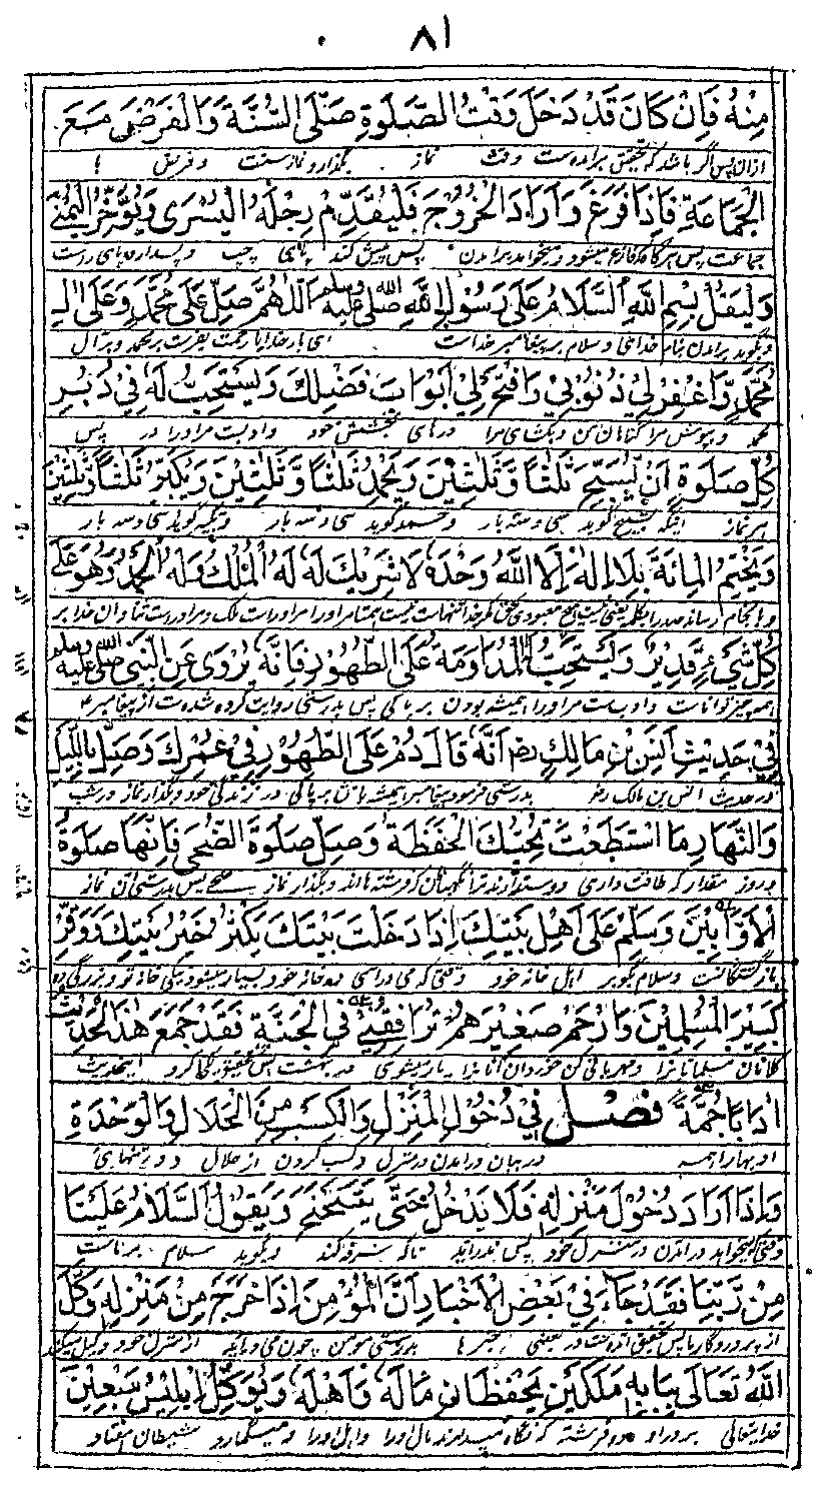 ٨١
مِنْهُ فَاِنْ كَانَ قَدْ دَخَلَ وَقْتُ الصَّلٰوةِ صَلَّى السُّنَّةَ وَالْفَرْضَ مَعَ
ازان پس اگر باشد که بتحقیق برآمده است وقت نماز بگذارد نماز سنت و فرض با
الْجَمَاعَةِ فَاِذَا فَرَغَ وَاَرَادَ الْخُرُوْجَ فَلْيُقَدِّمْ رِجْلَهُ الْيُسْرٰى وَيُؤَخِّرُ الْيُمْنٰى
جماعت پس هرگاه که فارغ میشود و میخواهد برآمدن پس پیش کند پای چپ و پس دارد پای راست
وَلْيَقُلْ بِسْمِ اللّٰهِ اَلسَّلَامُ عَلٰى رَسُوْلِ اللّٰهِ صلى الله عليه وسلم اَللّٰهُمَّ صَلِّ عَلٰى مُحَمَّدٍ وَعَلٰى اٰلِ
وبگوید برآمدن بنام خدای و سلام بر پیغامبر خداست ای بار خدایا رحمت بفرست بر محمد و بر آل
مُحَمَّدٍ وَّاغْفِرْ لِيْ ذُنُوْبِيْ وَافْتَحْ لِيْ اَبْوَابَ فَضْلِكَ وَيُسْتَحَبُّ لَهٗ فِيْ دُبُرِ
محمد و بپوش مرا گناهان من و بکشای مرا درهای بخشش خود و اولیست مر او را در پس
كُلِّ صَلٰوةٍ اَنْ يُّسَبِّحَ ثَلٰثًا وَّثَلٰثِيْنَ وَيَحْمِدُ ثَلٰثًا وَّثَلٰثِيْنَ وَيُكَبِّرُ ثَلٰثًا وَّثَلٰثِيْنَ
هر نماز اینکه تسبیح گوید سی و سه بار و حمد گوید سی و سه بار و تکبیر گوید سی و سه بار
وَيَخْتِمُ الْمِائَةَ بِلَا اِلٰهَ اِلَّا اللّٰهُ وَحْدَهٗ لَا شَرِيْكَ لَهٗ لَهُ الْمُلْكُ وَلَهُ الْحَمْدُ وَهُوَ عَلٰى
كُلِّ شَيْءٍ قَدِيْرٌ وَلَيُسْتَحَبُّ الْمُدَاوَمَةُ عَلَى الطُّهُوْرِ فَاِنَّهٗ يُرْوٰى عَنِ النَّبِيِّ صلى الله عليه وسلم
همه چیز تواناست و اولیست مر او را همیشه بودن بر پاکی پس بدرستی روایت کرده شده است از پیغامبر
فِيْ حَدِيْثِ اَنَسِ بْنِ مَالِكٍ رض اَنَّهٗ قَالَ دُمْ عَلَى الطُّهُوْرِ فِيْ عُمْرِكَ وَصَلِّ بِاللَّيْلِ
در حدیث انس بن مالک رض بدرستی فرمود پیغامبر همیشه باش بر پاکی در زندگی خود و بگذار نماز در شب
وَالنَّهَارِ مَا اسْتَطَعْتَ تُحِبُّكَ الْحَفَظَةُ وَصَلِّ صَلٰوةَ الضُّحٰى فَاِنَّهَا صَلٰوةُ
و روز مقدار که طاقت داری دوست دارند ترا نگهبانان که فرشته ها اند و بگذار نماز صبح پس بدرستی آن نماز
الْاَوَّابِيْنَ وَسَلِّمْ عَلٰى اَهْلِ بَيْتِكَ اِذَا دَخَلْتَ بَيْتَكَ يَكْثُرْ خَيْرُ بَيْتِكَ وَوَقِّرْ
بازگشتگانست و سلام بگو بر اهل خانه خود وقتی که می درآئی در خانه خود بسیار میشود نیکی خانه تو و بزرگی ده
كَبِيْرَ الْمُسْلِمِيْنَ وَارْحَمْ صَغِيْرَهُمْ تُرَافِقْنِيْ فِي الْجَنَّةِ فَقَدْ جَمَعَ هٰذَا الْحَدِيْثُ
کلانان مسلمانانرا و مهربانی کن خوردان آنانرا یار میشوی در بهشت پس بتحقیق یکجا کرد اینحدیث
اٰدَابًا جُمَّةً فَصْلٌ فِيْ دُخُوْلِ الْمَنْزِلِ وَالْكَسْبِ مِنَ الْحَلَالِ وَالْوَحْدَةِ
ادبها را همه در بیان درآمدن در منزل و کسب کردن از حلال و در تنهایی
وَاِذَا اَرَادَ دُخُوْلَ مَنْزِلِهٖ فَلَا يَدْخُلُ حَتّٰى يَتَنَحْنَحَ وَيَقُوْلُ السَّلَامُ عَلَيْنَا
وقتی که میخواهد درآمدن در منزل خود پس ندرآید تا که سرفه کند و بگوید سلام بر ماست
مِنْ رَّبِّنَا فَقَدْ جَاءَ فِيْ بَعْضِ الْاَخْبَارِ اَنَّ الْمُؤْمِنَ اِذَا خَرَجَ مِنْ مَنْزِلِهٖ وَكَّلَ
از پروردگار ما پس بتحقیق آمده است در بعضی خبرها بدرستی مومن چون می برآید از منزل خود وکیل میکند
اللّٰهُ تَعَالٰى بِبَابِهٖ مَلَكَيْنِ يَحْفَظَانِ مَالَهٗ وَاَهْلَهٗ وَيُوَكِّلُ اِبْلِيْسُ سَبْعِيْنَ
خدایتعالی بر در او دو فرشته که نگاه میدارند مال او را و اهل او را و میگمارد شیطان هفتاد